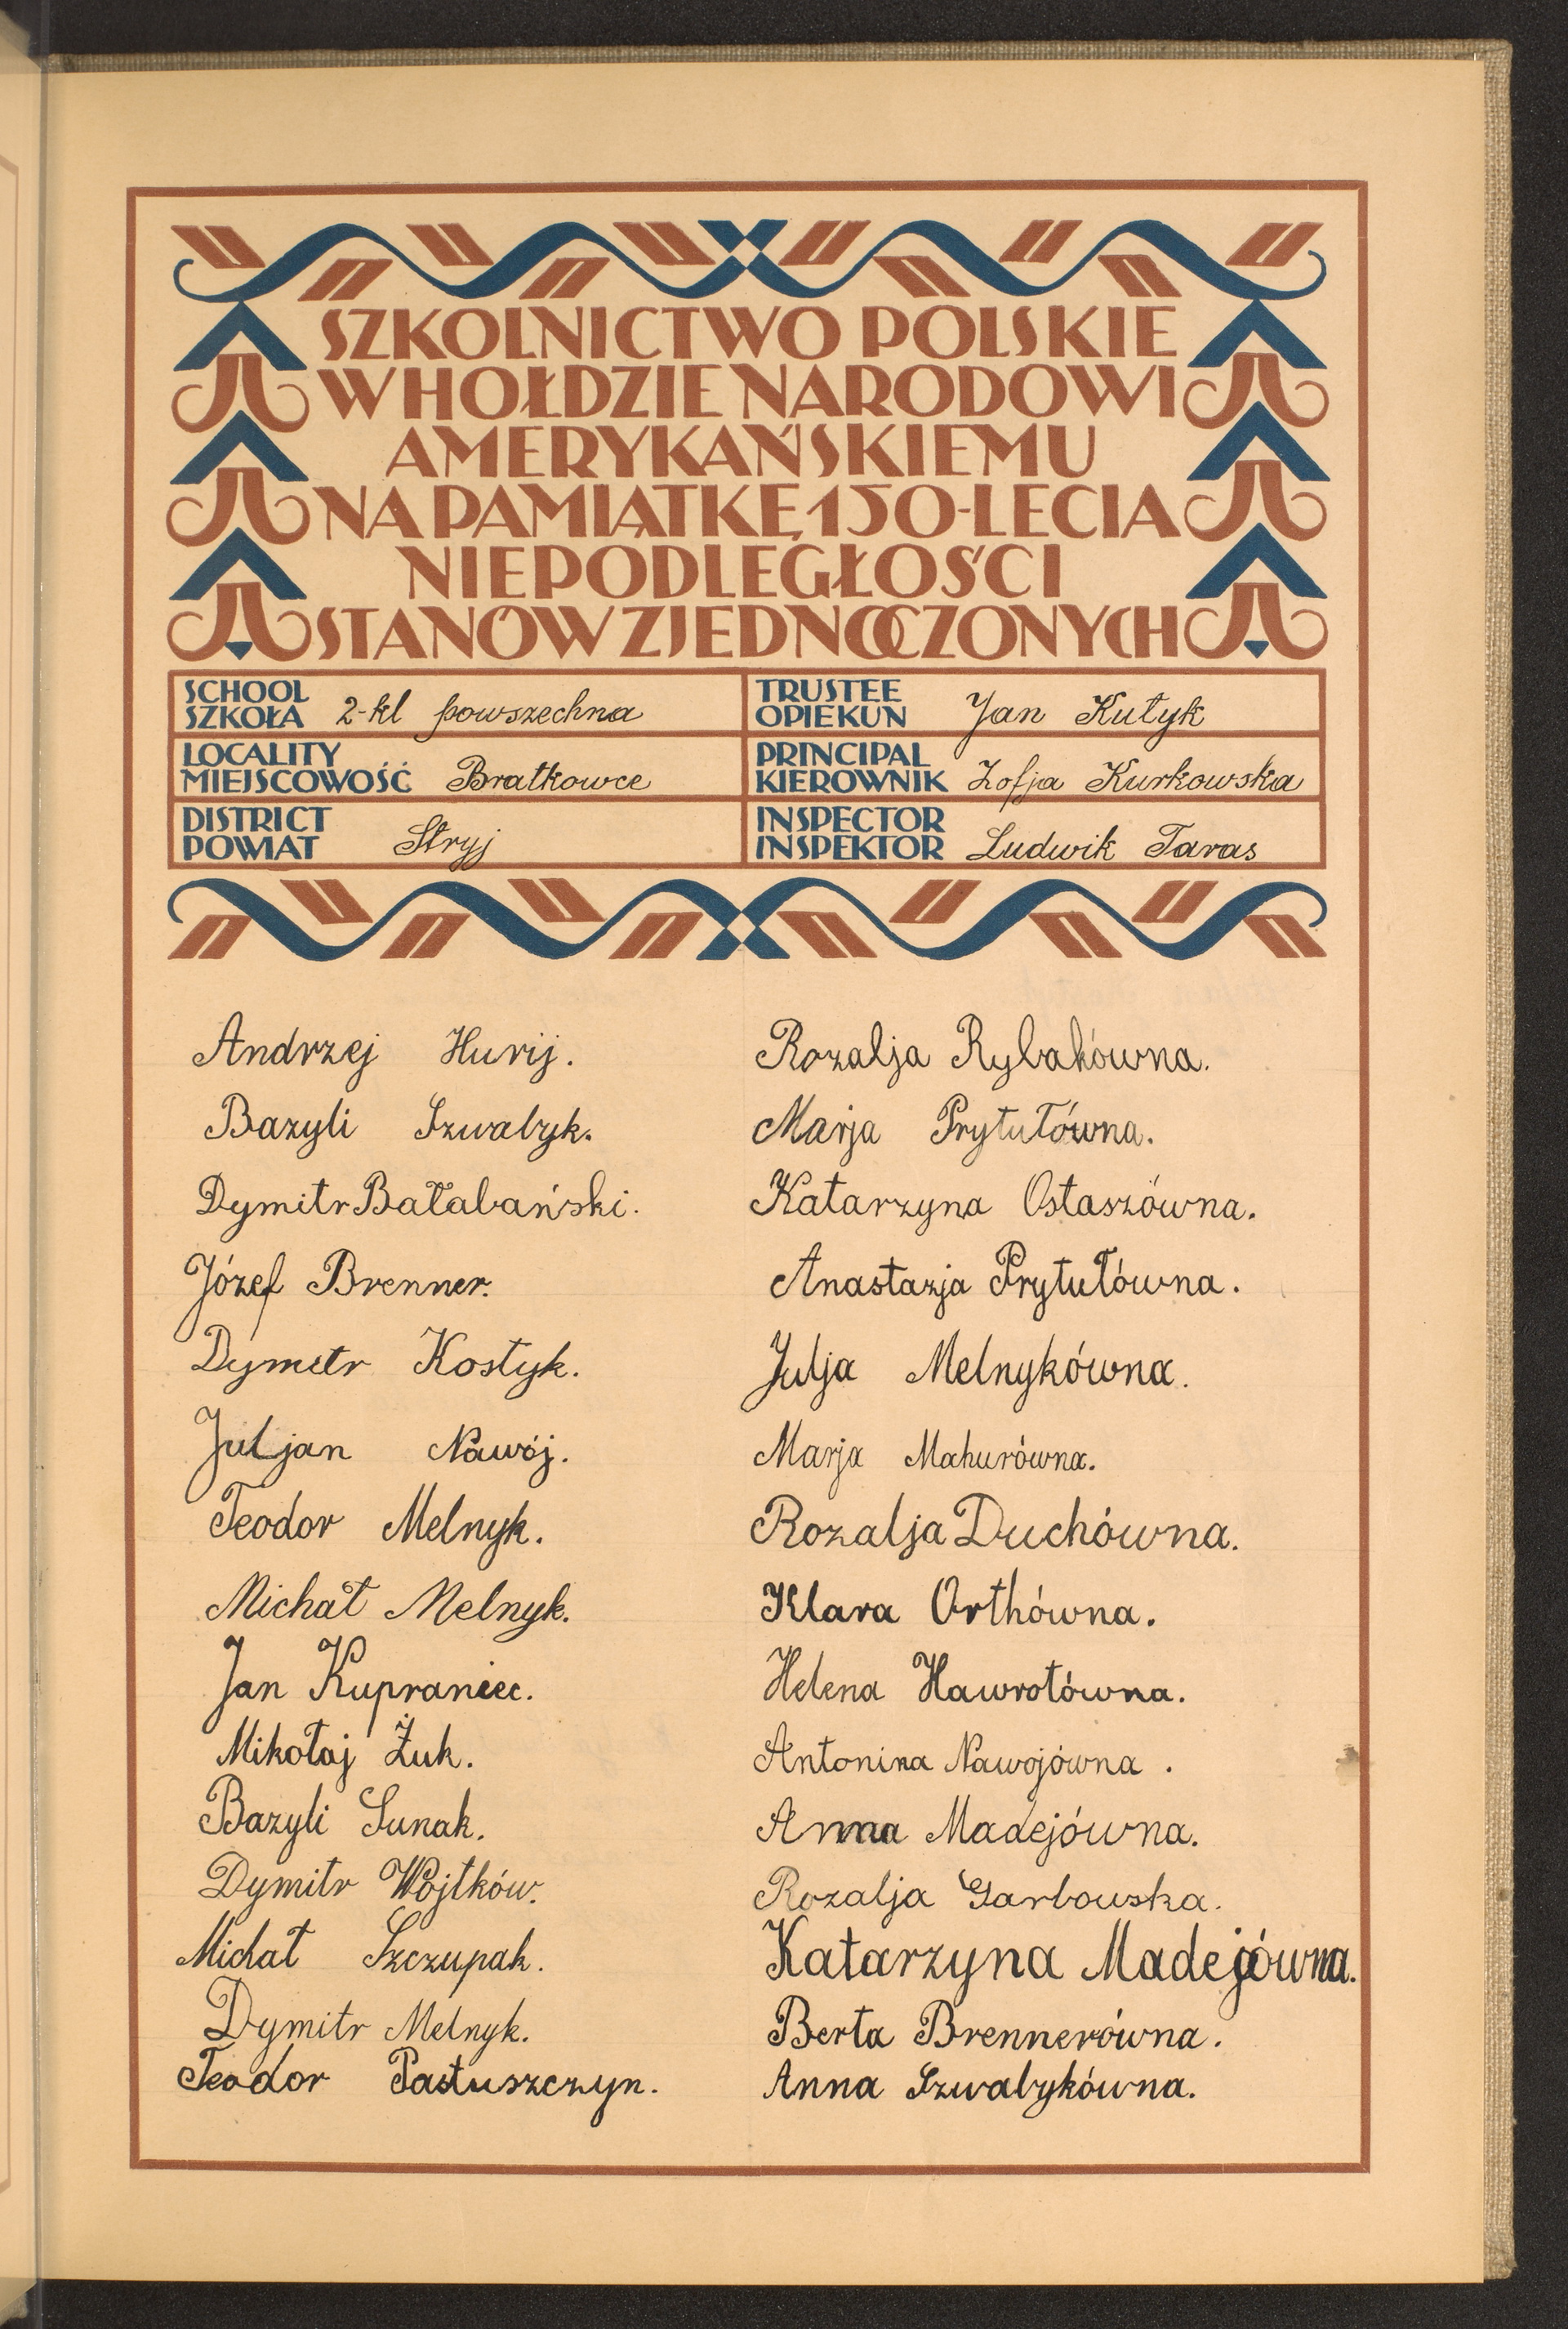 SZKOLNICTWO POLSKIE
W HOŁDZIE NARODOWI
AMERYKAŃSKIEMU
NA PAMIĄTKĘ 150-LECIA
NIEPODLEGŁOŚCI
STANÓW ZJEDNOCZONYCH
SCHOOL
SZKOŁA 2-kl powszechna
TRUSTEE
OPIEKUN Jan Kutyk
LOCALITY
MIEJSCOWOŚĆ Bratkowce
PRINCIPAL
KIEROWNIK Zofja Kurkowska
DISTRICT
POWIAT Stryj
INSPECTOR
INSPEKTOR Ludwik Taras
Andrzej Hurij.
Bazyli Szwabyk.
Dymitr Bałabański.
Józef Brenner.
Dymitr Kostyk.
Juljan Nawój.
Teodor Melnyk.
Michał Melnyk.
Jan Kupraniec.
Mikołaj Żuk.
Bazyli Sunak.
Dymitr Wojtków.
Michał Szczupak.
Dymitr Melnyk.
Teodor Pastuszczyn.
Rozalja Rybakówna.
Marja Prytułówna.
Katarzyna Ostaszówna.
Anastazja Prytułówna.
Julja Melnykówna.
Marja Mahurówna.
Rozalja Duchówna.
Klara Orthówna.
Helena Hawrotówna.
Antonina Nawojówna.
Anna Madejówna.
Rozalja Garbowska.
Katarzyna Madejówna.
Berta Brennerówna.
Anna Szwabykówna.